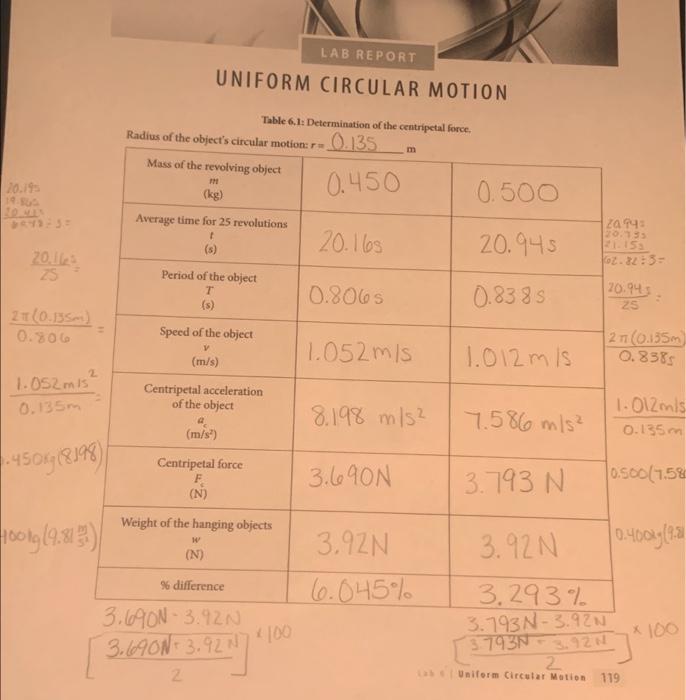 LAB REPORT
UNIFORM CIRCULAR MOTION
Table 6.1: Determination of the centripetal force.
Radius of the object's circular motion: r = 0.135 m
Mass of the revolving object
m
(kg)
0.450
0.500
Average time for 25 revolutions
t
(s)
20.16s
20.94s
20.19s
20.94s
20.73s
21.15s
62.82÷3=
Period of the object
T
(s)
0.806s
0.838s
20.16s
25
=
20.94s
25
=
Speed of the object
v
(m/s)
1.052m/s
1.012m/s
2π(0.135m)
0.806
=
2π(0.135m)
0.838s
Centripetal acceleration
of the object
a꜀
(m/s²)
8.198 m/s²
7.586 m/s²
1.052m/s²
0.135m
=
1.012m/s
0.135m
Centripetal force
F꜀
(N)
3.690N
3.793 N
.450kg(8.198)
0.500(7.58
Weight of the hanging objects
w
(N)
3.92N
3.92N
400kg(9.81 m/s²)
0.400kg(9.8
% difference
6.045%
3.293%
3.690N - 3.92N
[3.690N + 3.92N] × 100
2
3.793N - 3.92N
[3.793N + 3.92N] × 100
2
Lab 6 | Uniform Circular Motion 119